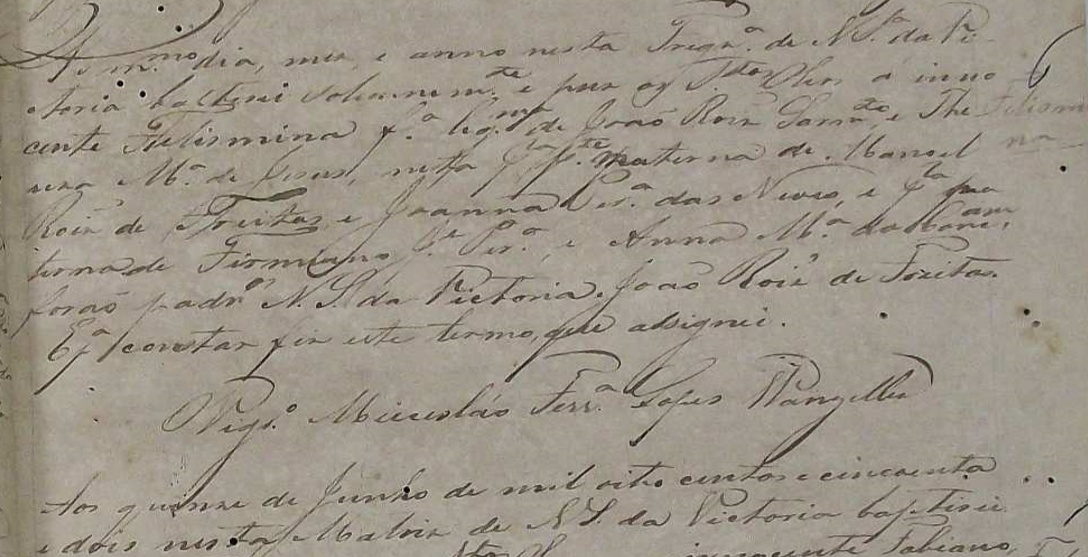 No m.mo dia, mes, e anno nesta Freg.a de N. S.a da Vi-
ctoria baptizei solemnem.te e puz os S.tos Oleos a inno
cente Felismina f.a leg.ma de João Roiz Sarm.to, e The
reza M.a de Jesus, neta p.la p.te materna de Manoel
Roiz de Freitas, e Joanna Per.a das Neves, e p.la pa
terna de Firmiano J.e Per.a, e Anna M.a da
forão padr.os N. S. da Victoria. João Roiz de Freitas.
E p.a constar fiz este termo, que assignei.
Vig.o Micesláo Ferr.a Lopes Wangeller
Felismi
na
Aos quinze de Junho de mil oito centos e cincoenta
e dois nesta Matriz de N. S. da Victoria baptisei
innocente Fabiano